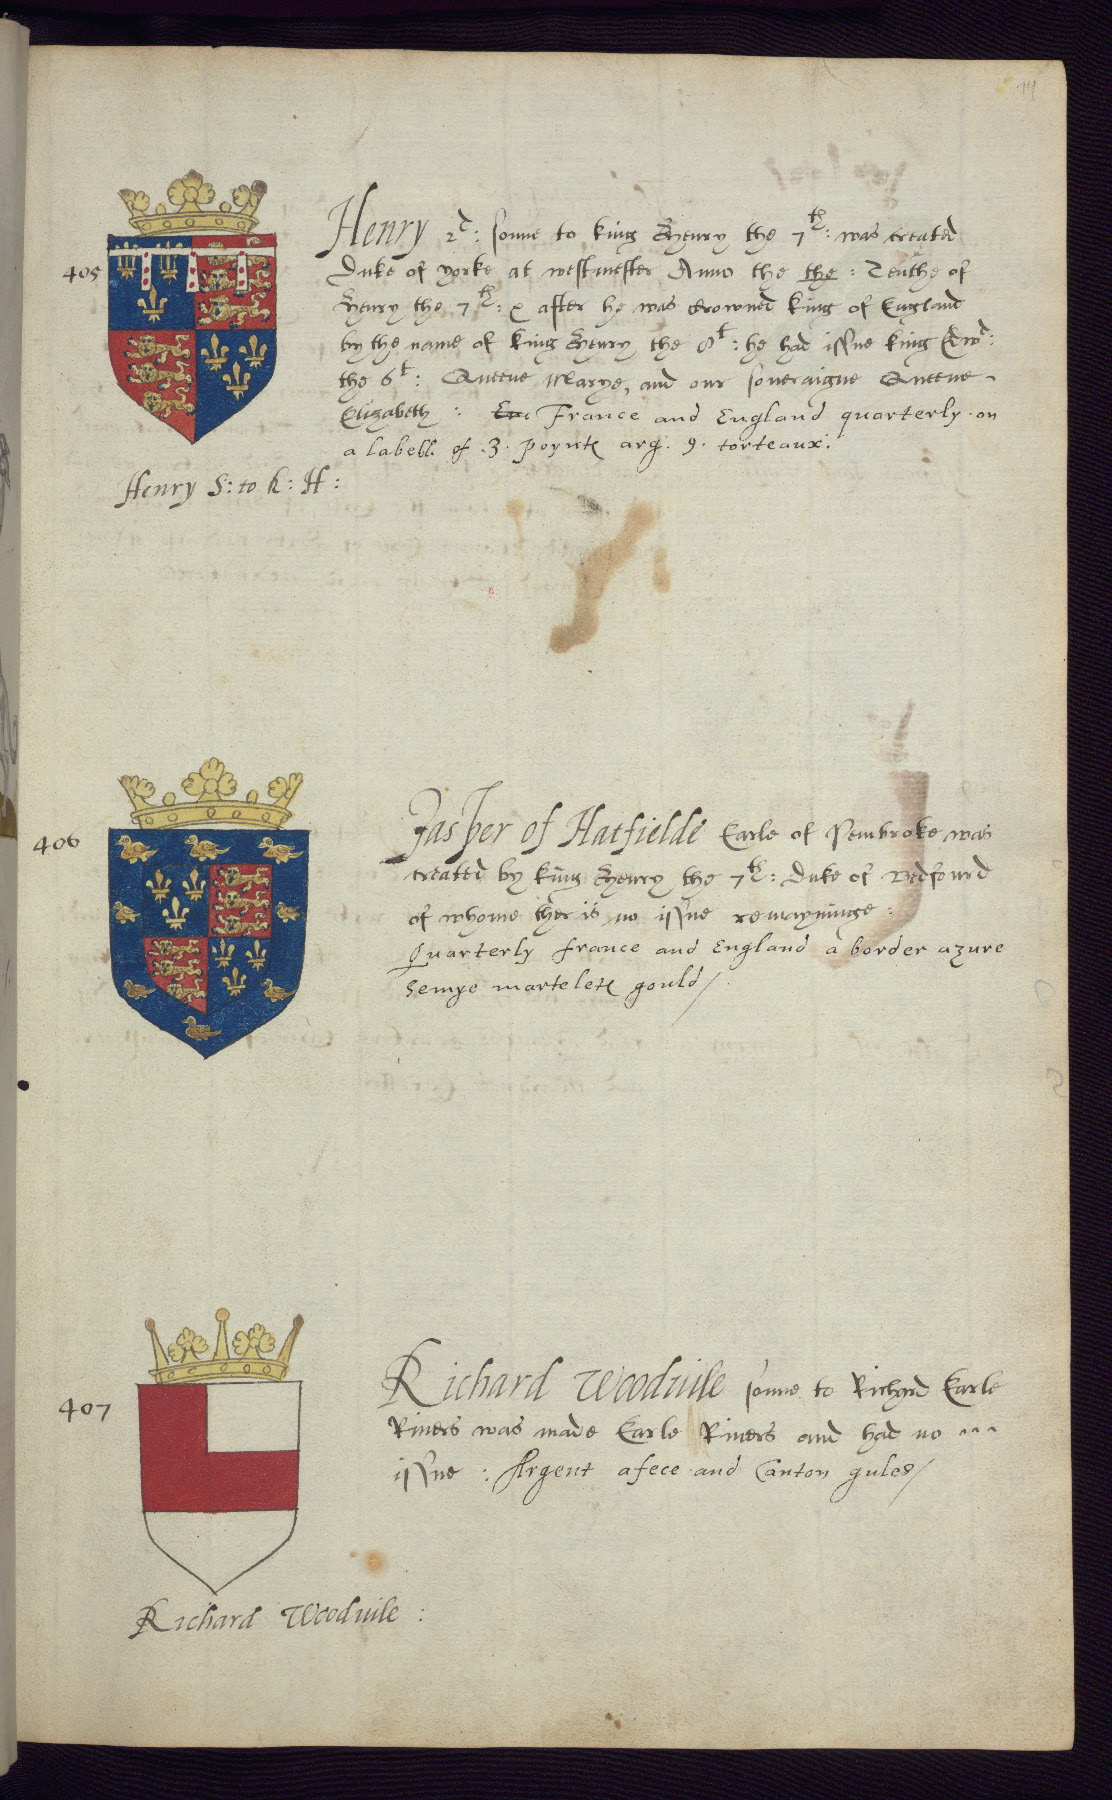 405
Henry 2d: sonne to king Henry the 7th: was created
Duke of yorke at westmester Anno the the : Tenthe of
Henry the 7th: & after he was Crowned king of England
by the name of king Henry the 8t: he had issue king Edwd:
the 6t: Queene Marye, and our soueraigne Queene
Elizabeth : France and England quarterly on
a labell of .3. poynts arg. 9. torteaux:
Henry S: to k: H:
406
Jasper of Hatfielde Earle of Pembroke was
created by king Henry the 7th: Duke of Bedfourd
of whome ther is no issue remayninge:
Quarterly france and England a border azure
Semye martelets gould/
407
Richard Woodvile sonne to Richard Earle
Rivers was made Earle Rivers and had no
issue : Argent a fece and Canton gules/
Richard Woodvile :